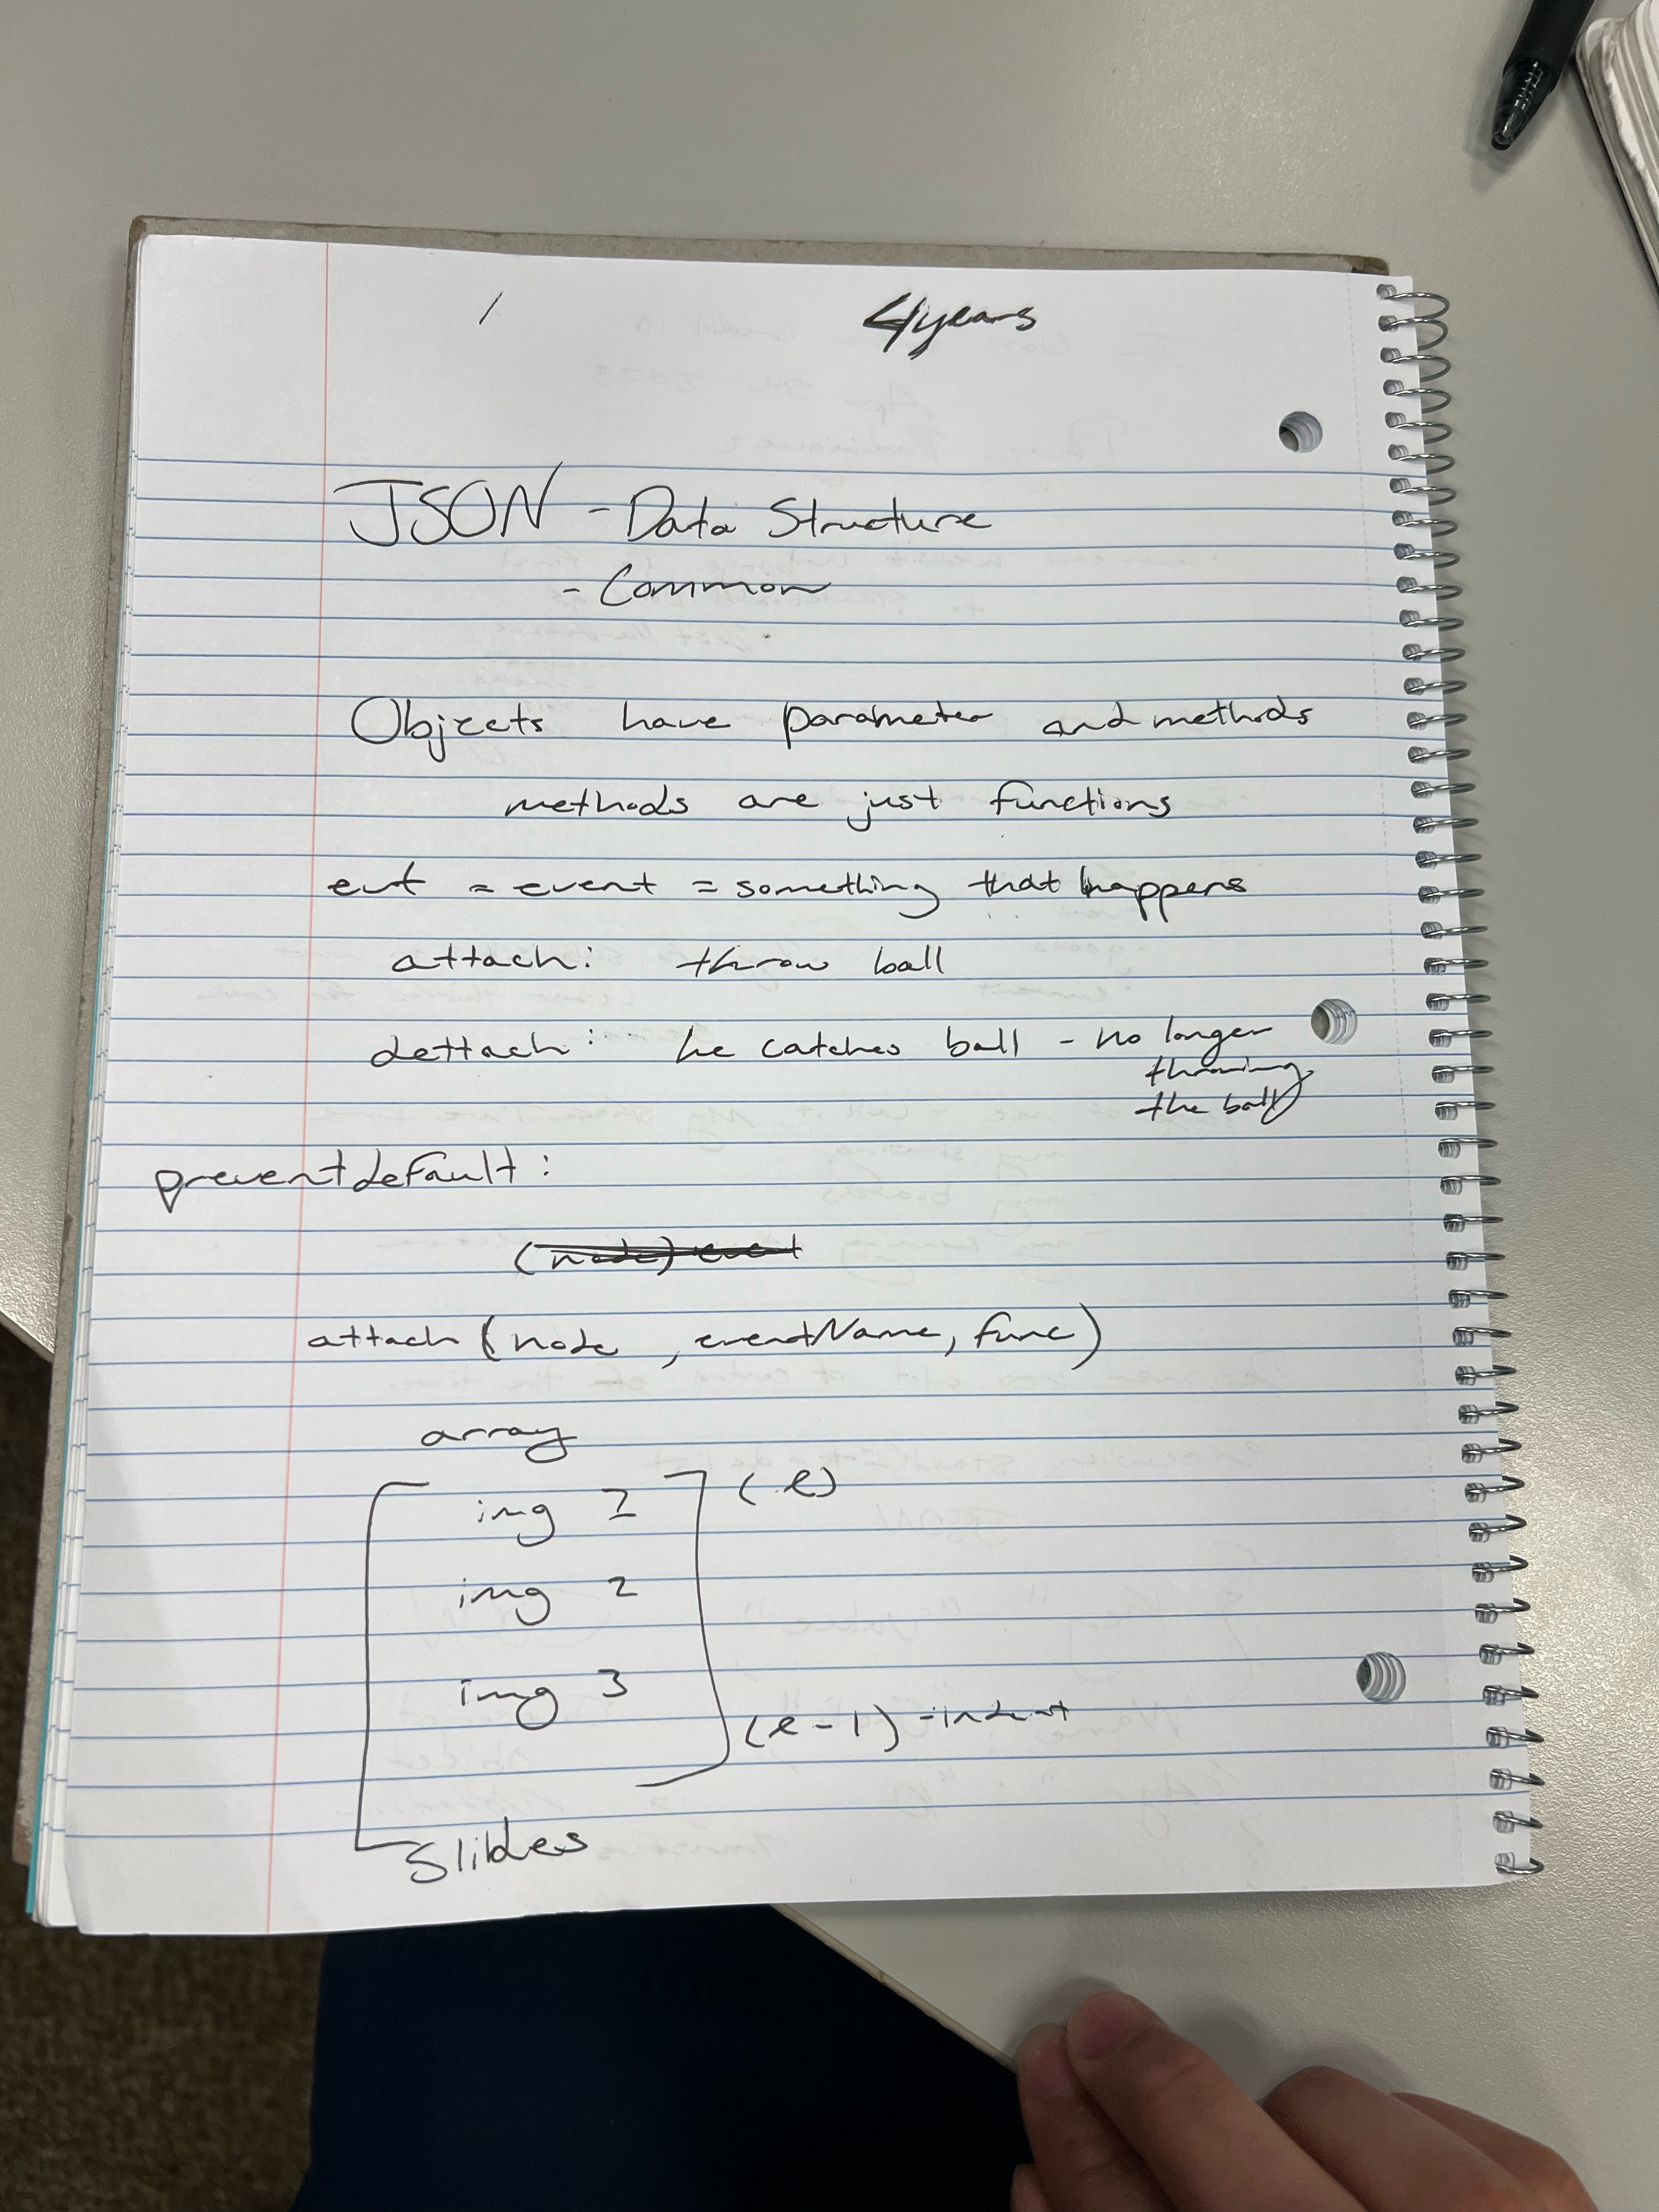 4years
JSON - Data Structure
- Common
Objects have parameter and methods
methods are just functions
evt = event = something that happens
attach: throw ball
dettach: he catches ball - no longer
throwing
the ball
preventdefault:
(node) event
attach (node , eventName, func)
array
img 1 (l)
img 2
img 3
(l-1) -
Slides